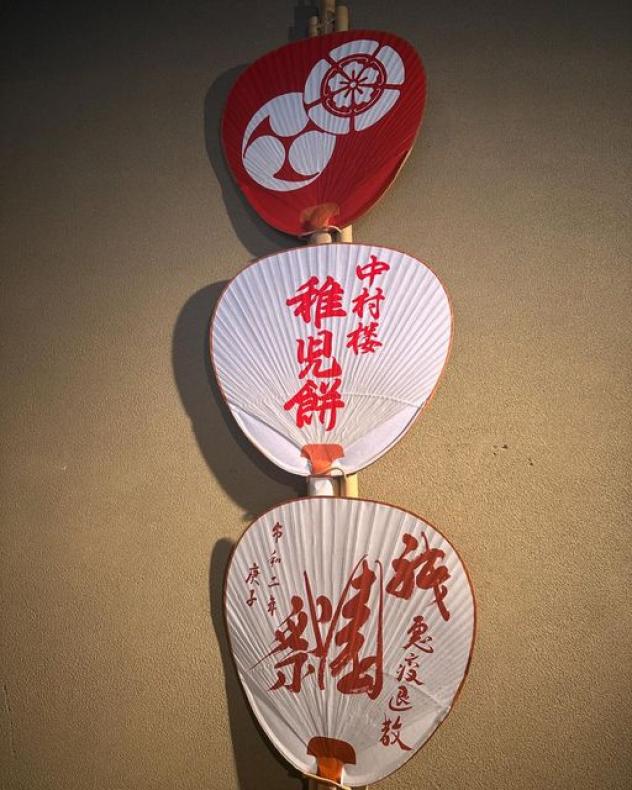 中村楼
稚児餅
祇園祭
悪疫退散
令和二年
庚子